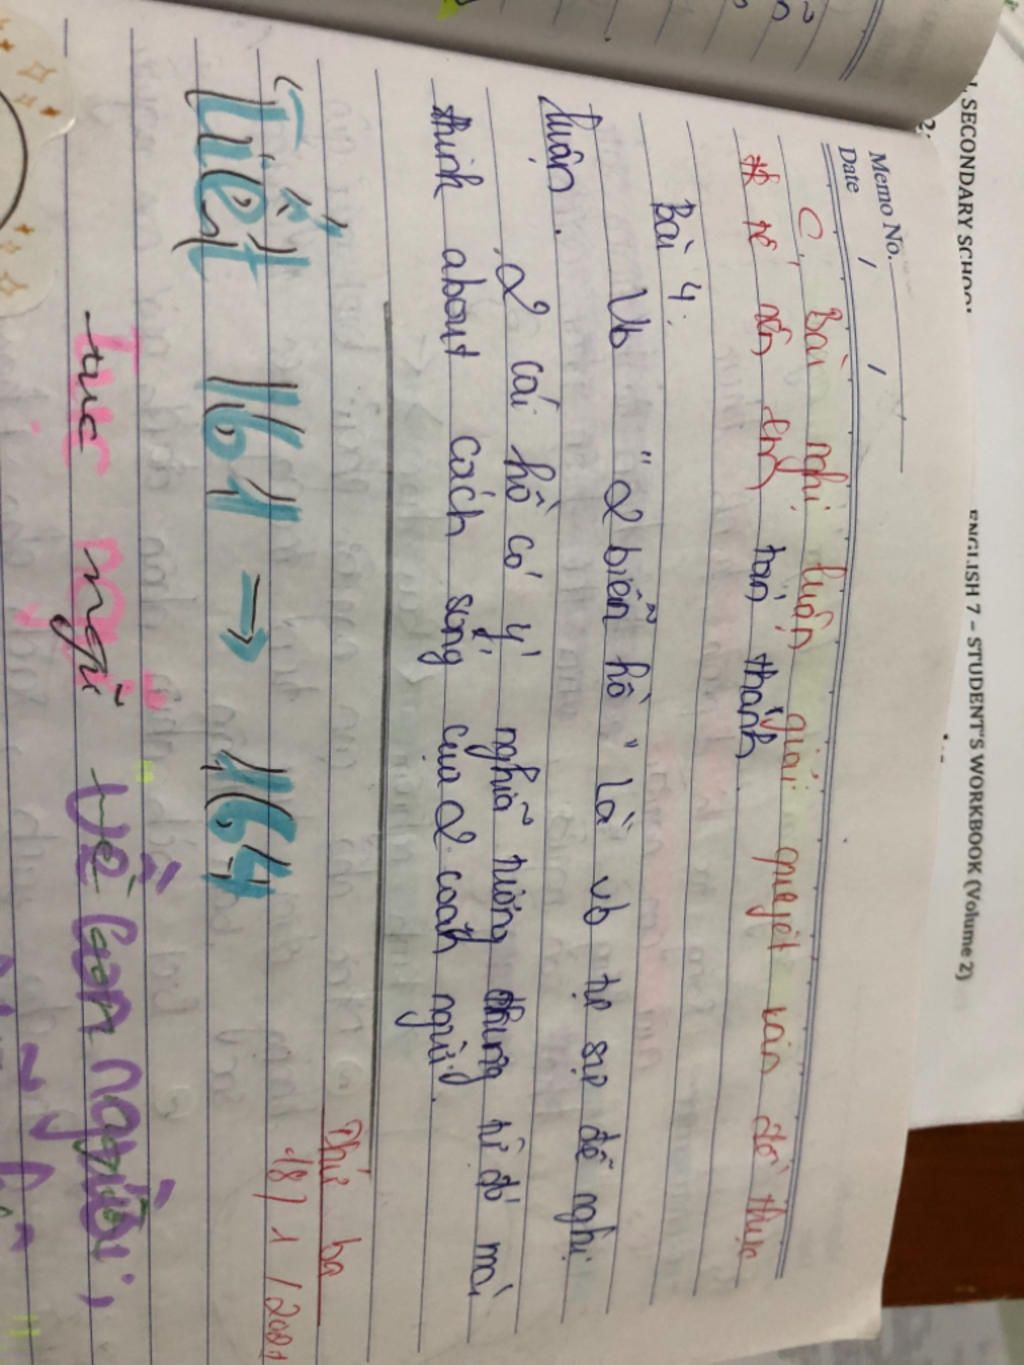 SECONDARY SCHOOL
ENGLISH 7 – STUDENT'S WORKBOOK (Volume 2)
Memo No.
Date / /
C, Bài nghị luận giải quyết vấn đề thực
tế nên em tán thành
Bài 4:
Vb " 2 biển hồ " là vb tự sự để nghị
luận.
2 cái hồ có ý nghĩa tượng trưng từ đó mà
think about cách sống của 2 con người.
Thứ ba
Tiết 161 → 164
18 / 1 / 202
tục ngữ về con người,